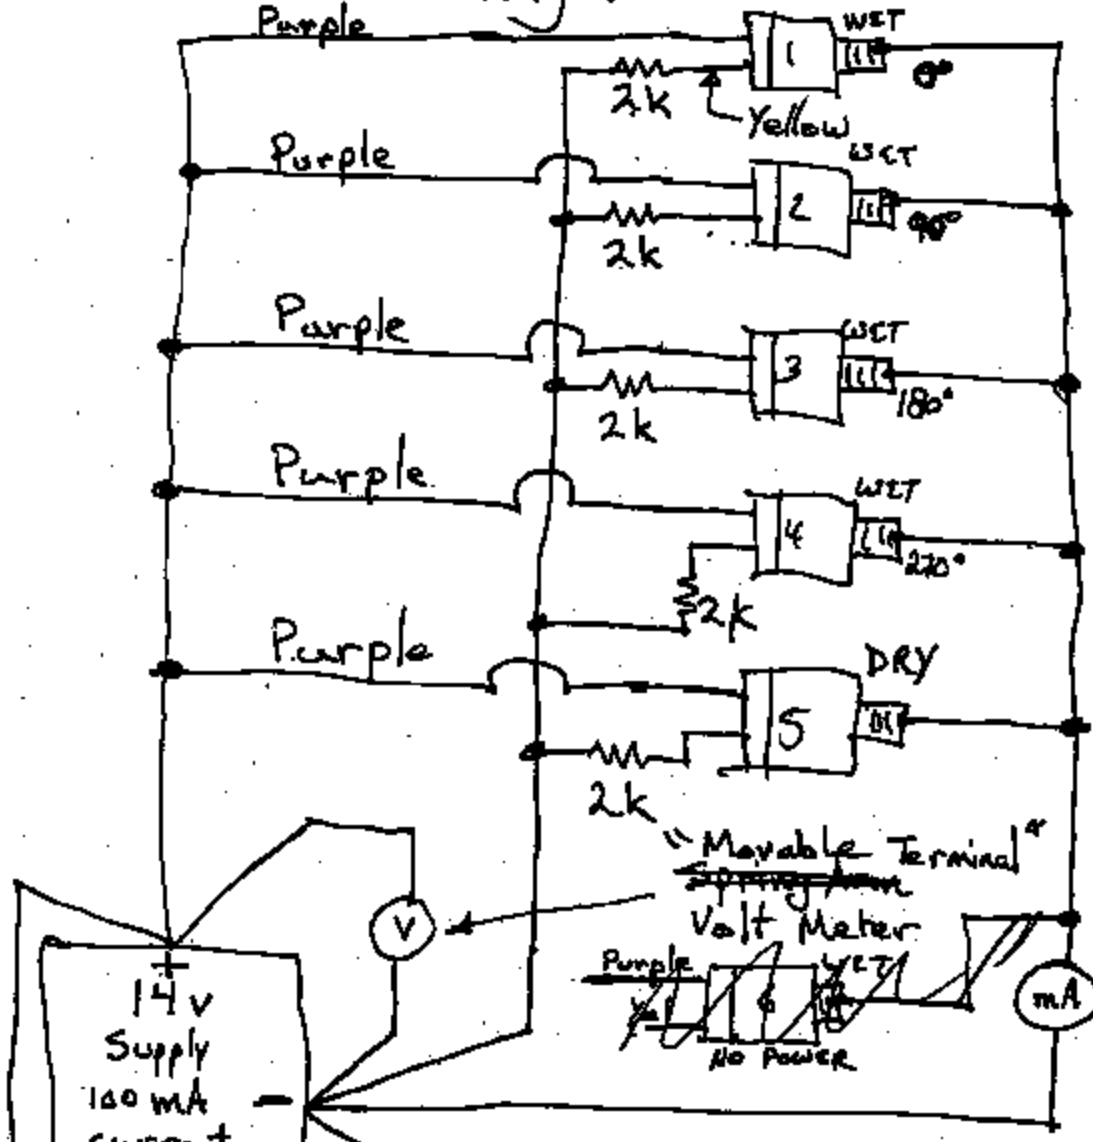 Purple
WET
1
0°
2k
Yellow
Purple
WET
2
90°
2k
Purple
WET
3
180°
2k
Purple
WET
4
270°
2k
Purple
DRY
5
2k
"Movable Terminal"
Volt Meter
V
Purple
WET
6
NO POWER
mA
+
14v
Supply
100 mA
-